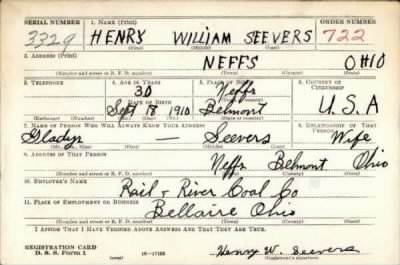 SERIAL NUMBER 1. NAME (Print) ORDER NUMBER
3329 HENRY WILLIAM SEEVERS 722
(First) (Middle) (Last)
2. ADDRESS (Print)
NEFFS OHIO
(Number and street or R. F. D. number) (Town) (County) (State)
3. TELEPHONE 4. AGE IN YEARS 5. PLACE OF BIRTH 6. COUNTRY OF CITIZENSHIP
30 Neffs
DATE OF BIRTH (Town or county)
Sept 8 1910 Belmont U.S.A
(Exchange) (Number) (Mo.) (Day) (Yr.) (State or country)
7. NAME OF PERSON WHO WILL ALWAYS KNOW YOUR ADDRESS 8. RELATIONSHIP OF THAT PERSON
Gladys — Seevers Wife
(Mr., Mrs., Miss) (First) (Middle) (Last)
9. ADDRESS OF THAT PERSON
Neffs Belmont Ohio
(Number and street or R. F. D. number) (Town) (County) (State)
10. EMPLOYER'S NAME
Rail & River Coal Co
11. PLACE OF EMPLOYMENT OR BUSINESS
Bellaire Ohio
(Number and street or R. F. D. number) (Town) (County) (State)
I AFFIRM THAT I HAVE VERIFIED ABOVE ANSWERS AND THAT THEY ARE TRUE.
REGISTRATION CARD
D. S. S. Form 1 16—17105 Henry W. Seevers
(over) (Registrant's signature)